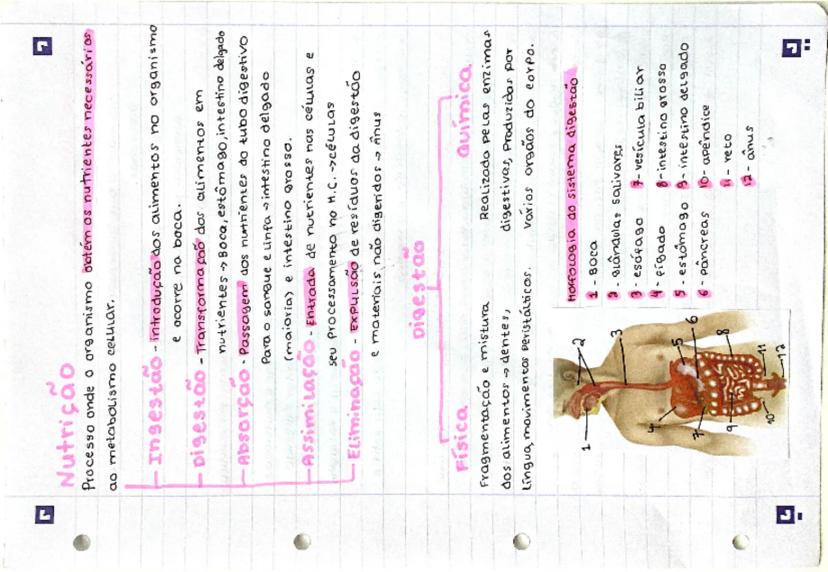 Nutrição
Processo onde o organismo obtém os nutrientes necessários
ao metabolismo celular.
Ingestão - introdução dos alimentos no organismo
e ocorre na boca.
Digestão - Transformação dos alimentos em
nutrientes → Boca, estômago, intestino delgado
Absorção - Passagem dos nutrientes do tubo digestivo
Para o sangue e linfa → intestino delgado
(maioria) e intestino grosso.
Assimilação - Entrada de nutrientes nas células e
seu Processamento no M.C. → células
Eliminação - Expulsão de resíduos da digestão
e materiais não digeridos → ânus
Digestão
Física
Fragmentação e mistura
dos alimentos → dentes,
Língua, movimentos Peristálticos.
Química
Realizado pelas enzimas
digestivas, Produzidas por
vários orgãos do corpo.
1
2
3
4
5
6
7
8
9
10
11
12
Morfologia do sistema digestão
1 - Boca
2 - Glândulas salivares
3 - esófago
4 - Fígado
5 - estômago
6 - Pâncreas
7 - vesícula biliar
8 - intestino grosso
9 - intestino delgado
10 - apêndice
11 - reto
12 - ânus